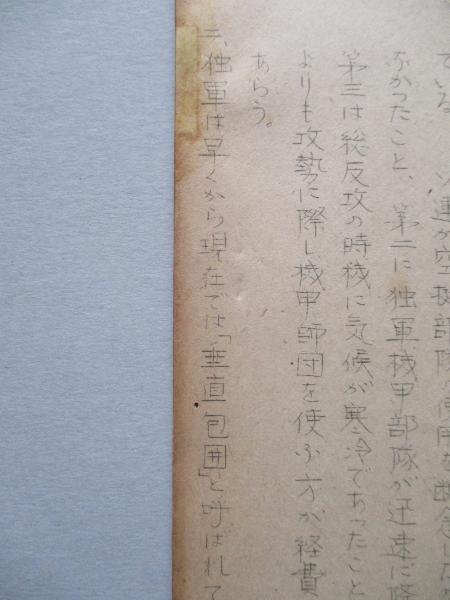 ている
ソ連が空挺部隊の使用を断念した
なかったこと、第二に独軍機甲部隊が迅速に
第三は総反攻の時機に気候が寒冷であったこと
よりも攻勢に際し機甲師団を使ふ方が経費
あらう。
二、独軍は早くから現在では「垂直包囲」と呼ばれて